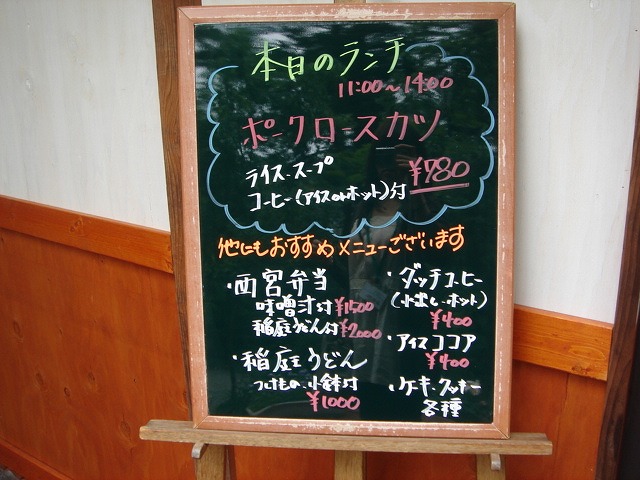 本日のランチ
11:00～14:00
ポークロースカツ
ライス・スープ
コーヒー(アイスorホット)付
¥780
他にもおすすめメニューございます
・西宮弁当
味噌汁付¥1500
稲庭うどん付¥2000
・稲庭うどん
つけもの、小鉢付
¥1000
・ダッチコーヒー
(水出し・ホット)
¥400
・アイスココア
¥400
・ケーキ・クッキー
各種